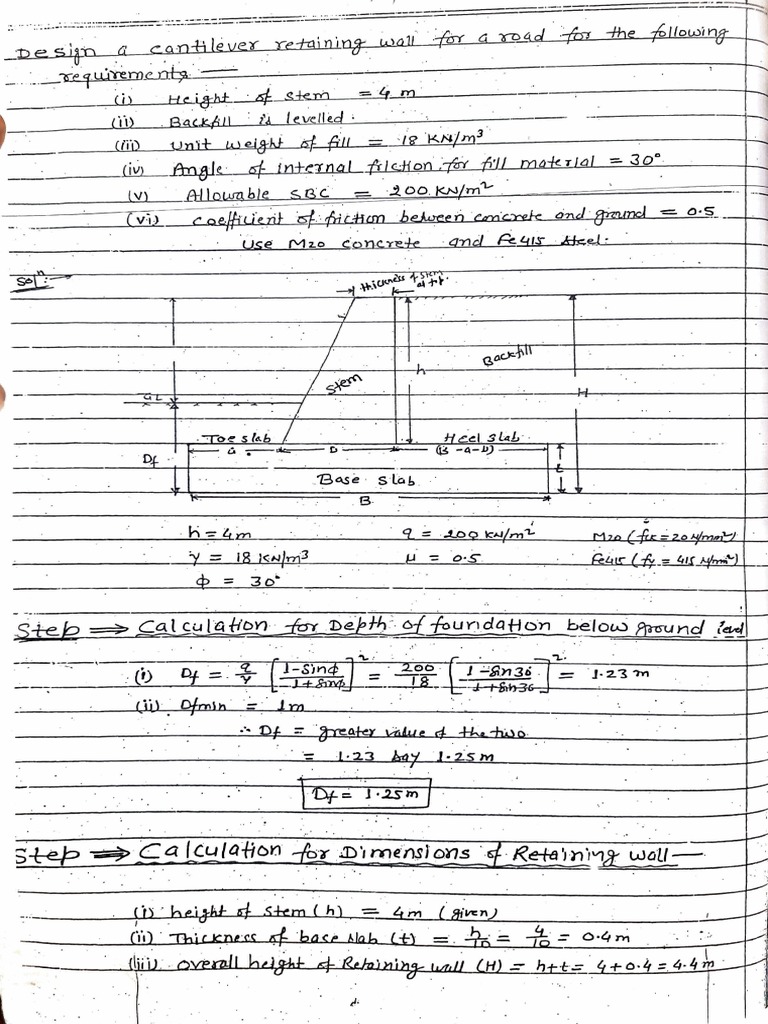 Design a cantilever retaining wall for a road for the following
requirements —
(i) Height of stem = 4 m
(ii) Backfill is levelled.
(iii) Unit weight of fill = 18 KN/m³
(iv) Angle of internal friction for fill material = 30°
(v) Allowable SBC = 200 KN/m²
(vi) coefficient of friction between concrete and ground = 0.5
Use M20 concrete and Fe415 steel.
Solⁿ:→
thickness of stem
at top.
Backfill
h
Stem
H
GL
Toe slab
Heel slab
Df
a
b
(B-a-b)
t
Base slab
B
h = 4m q = 200 KN/m² M20 (fck = 20 N/mm²)
γ = 18 KN/m³ μ = 0.5 Fe415 (fy = 415 N/mm²)
φ = 30°
Step ⇒ Calculation for Depth of foundation below ground level
(i) Df = q/γ [1-sinφ/1+sinφ]² = 200/18 [1-sin30/1+sin30]² = 1.23 m
(ii) Dfmin = 1m
∴ Df = greater value of the two
= 1.23 say 1.25m
Df = 1.25m
Step ⇒ Calculation for Dimensions of Retaining wall —
(i) height of stem (h) = 4m (given)
(ii) Thickness of base slab (t) = h/10 = 4/10 = 0.4m
(iii) overall height of Retaining wall (H) = h+t = 4+0.4 = 4.4m